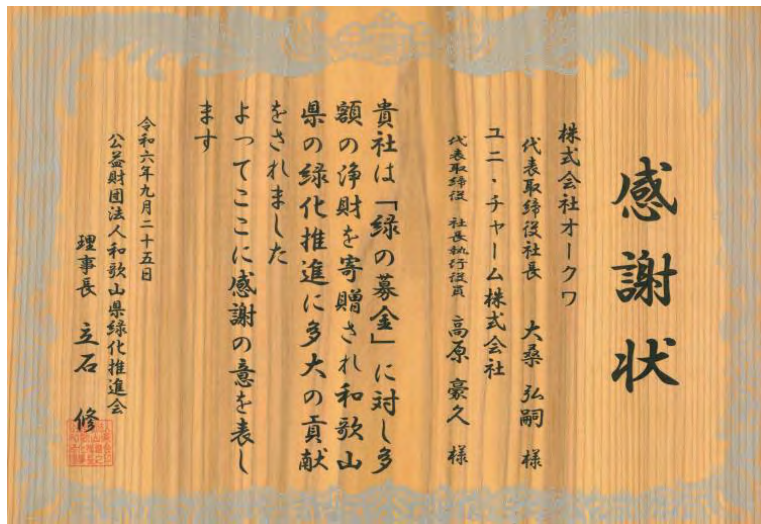 感謝状
株式会社オークワ
代表取締役社長 大桑 弘嗣 様
ユニ・チャーム株式会社
代表取締役 社長執行役員 高原 豪久 様
貴社は「緑の募金」に対し多
額の浄財を寄贈され和歌山
県の緑化推進に多大の貢献
をされました
よってここに感謝の意を表し
ます
令和六年九月二十五日
公益財団法人和歌山県緑化推進会
理事長 立石 修